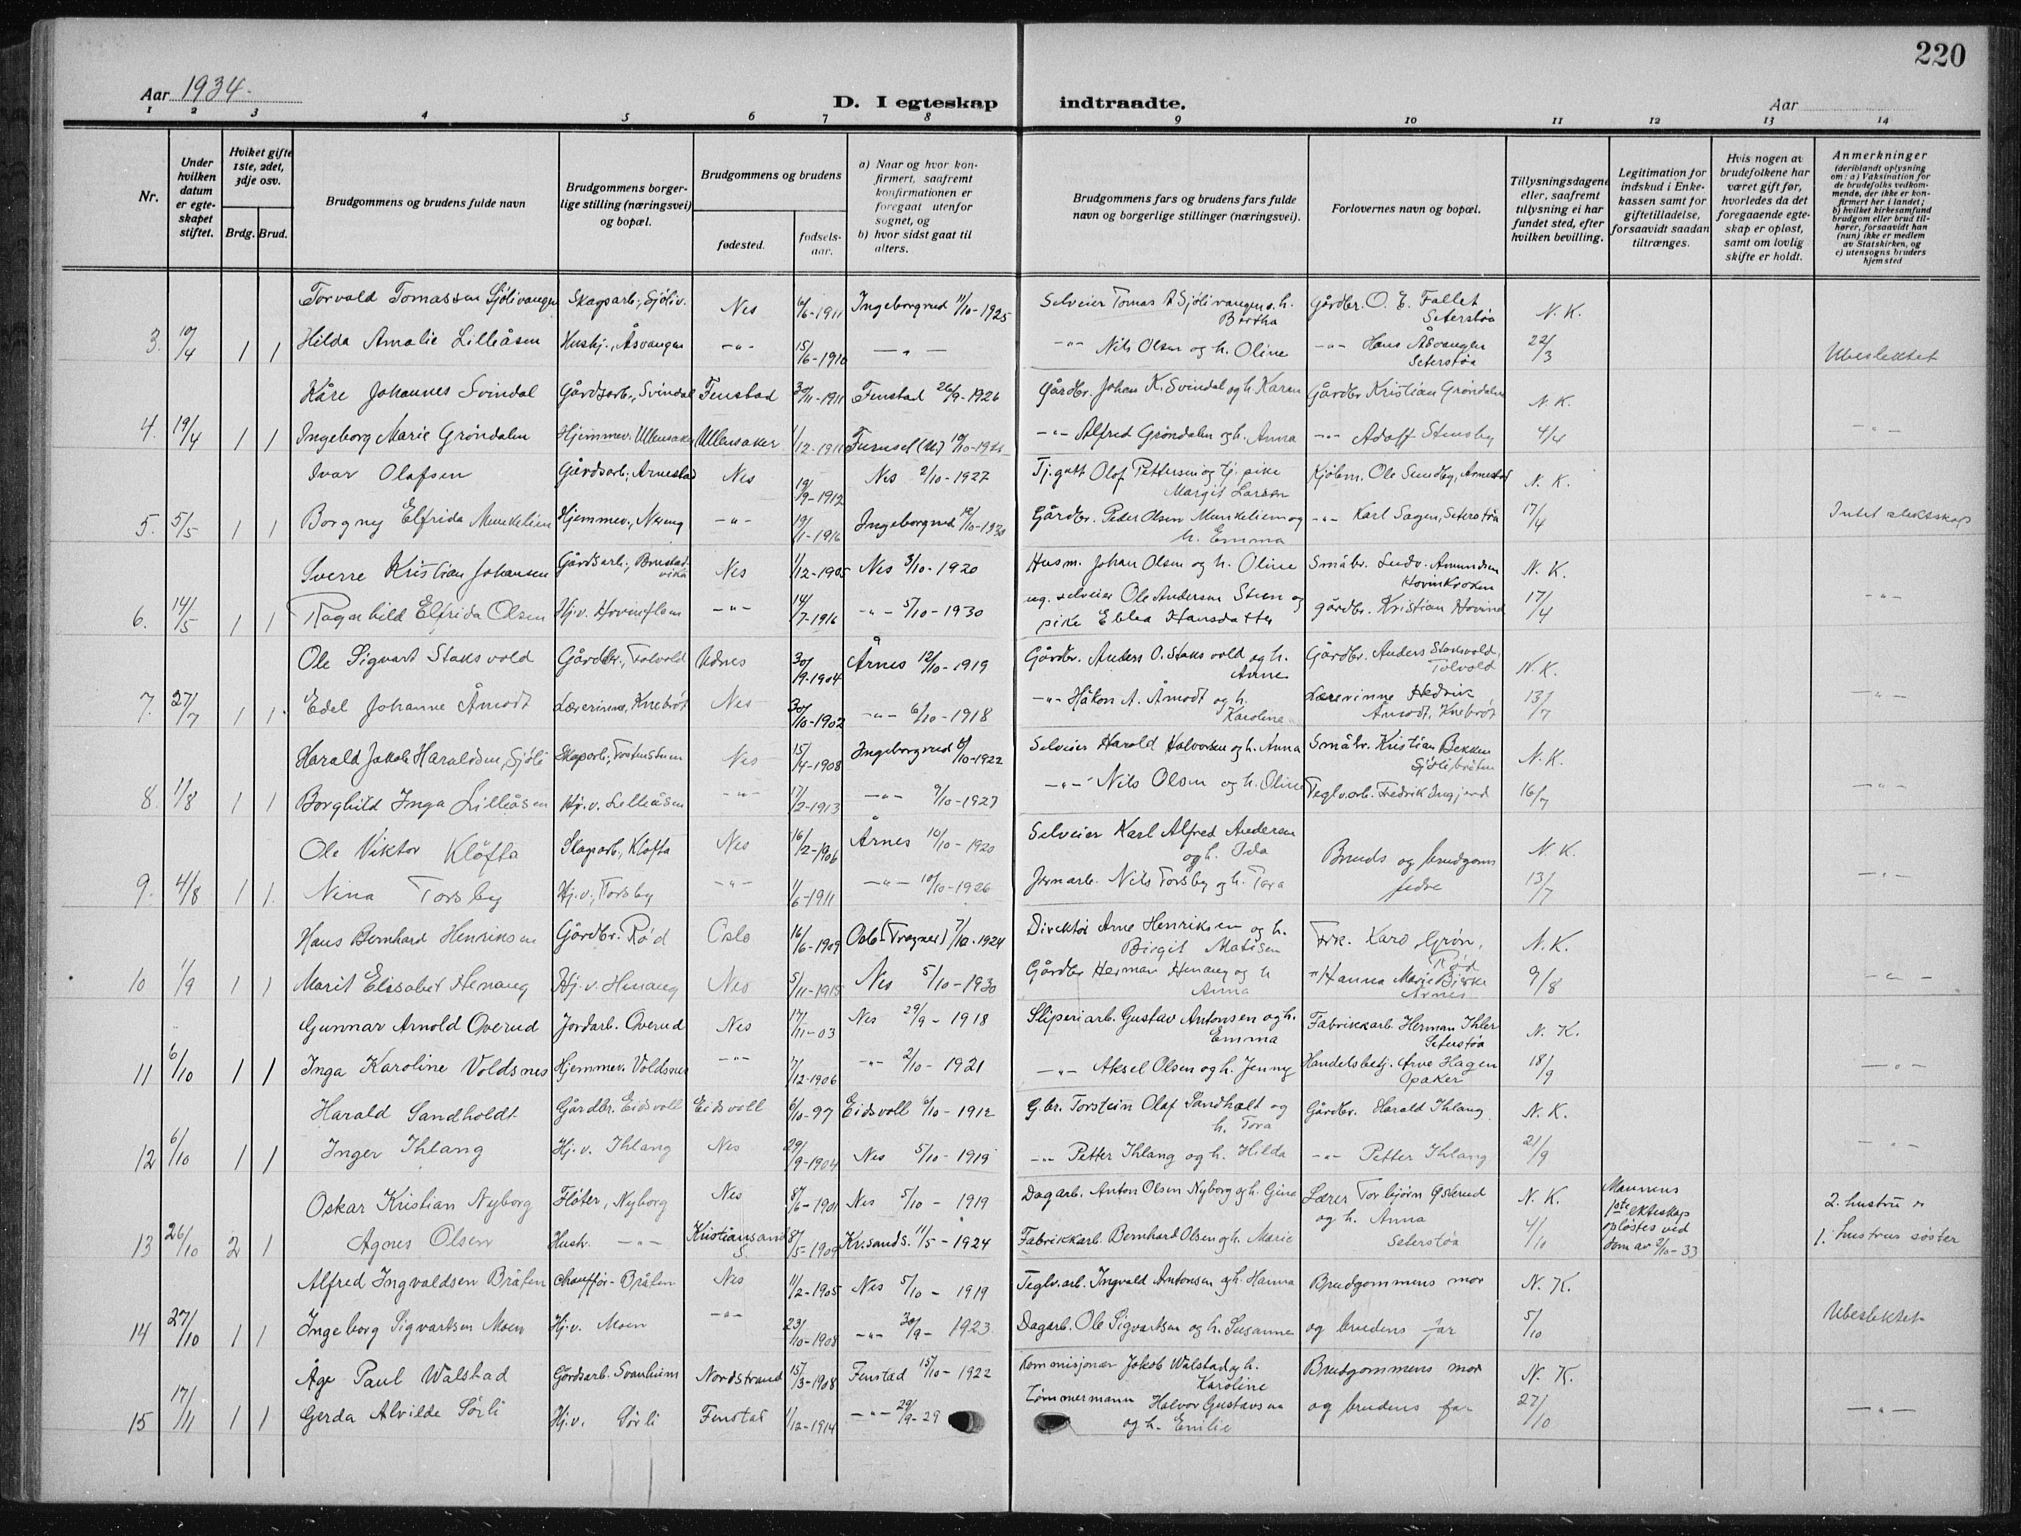 220
Aar 1934.
D. I egteskap indtraadte.
Aar
1 2 3 4 5 6 7 8 9 10 11 12 13 14
Nr.
Under hvilken datum er egteskapet stiftet.
Hviket gifte 1ste, 2det, 3dje osv.
Brdg. Brud.
Brudgommens og brudens fulde navn
Brudgommens borgerlige stilling (næringsvei) og bopæl.
Brudgommens og brudens
fødested.
fødselsaar.
a) Naar og hvor konfirmert, saafremt konfirmationen er foregaat utenfor sognet, og
b) hvor sidst gaat til alters.
Brudgommens fars og brudens fars fulde navn og borgerlige stillinger (næringsvei).
Forlovernes navn og bopæl.
Tillysningsdagene eller, saafremt tillysning ei har fundet sted, efter hvilken bevilling.
Legitimation for indskud i Enkekassen samt for giftetilladelse, forsaavidt saadan tiltrænges.
Hvis nogen av brudefolkene har været gift før, hvorledes da det foregaaende egteskap er opløst, samt om lovlig skifte er holdt.
Anmerkninger (deriblandt oplysning om: a) Vaksination for de brudefolks vedkommende, der ikke er konfirmert her i landet; b) hvilket kirkesamfund brudgom eller brud tilhører, forsaavidt han (hun) ikke er medlem av Statskirken, og c) utensogns bruders hjemsted
Torvald Tomassen Sjölivangen Skogsarb., Sjöliv. Nes 6/6-1911 Ingeborgrud 11/10-1925 Selveier Tomas A Sjölivangen o. h. Bertha Gårdbr. O. E. Fallet Seterstøa N. K.
3. 10/4 1 1 Hilda Amalie Lilleåsen Hushj., Åsvangen -"- 15/6-1910 -"- -"- Nils Olsen og h. Oline -"- Hans Åsvangen Seterstøa 22/3 Ubeslektet
Kåre Johannes Svindal Gårdsarb., Svindal Fenstad 30/11-1911 Fenstad 26/9-1926 Gårdbr. Johan K. Svindal og h. Karen Gårdbr Kristian Grøndalen N. K.
4. 19/4 1 1 Ingeborg Marie Grøndalen Hjemmev. Ullensaker Ullensaker 1/12-1911 Furuset (U) Alfred Grøndalen og h. Anna -"- Adolf Stensby 4/4 -"-
Ivar Olafsen Gårdsarb. Arnestad Nes 19/9-1912 Nes 2/10-1927 Tj.gutt Olof Pettersen og tj. pike Margit Larsen Kjøbm. Ole Sundby, Arnestad N. K.
5. 5/5 1 1 Borgny Elfrida Munkelien Hjemmev., Nereng -"- 19/1-1916 Ingeborgrud 12/10-1930 Gårdbr. Peder Olsen Munkelien og h. Emma -"- Karl Sagen, Seterstøa 17/4 Intet slektskap
Sverre Kristian Johansen Gårdsarb., Brustadvika Nes 1/12-1905 Nes 3/10-1920 Husm. Johan Olsen og h. Oline Småbr. Ludv. Amundsen Hovinkroken N. K.
6. 14/5 1 1 Ragnhild Elfrida Olsen Hj.v. Hovinflem -"- 14/7-1916 -"- 5/10-1930 ug. selveier Ole Andersen Steen og pike Ebba Hansdatter gårdbr. Kristian Hovind 17/4 -"-
Ole Sigvart Staksvold Gårdbr., Tolvold Udnes 30/9-1904 Årnes 12/10-1919 Gårdbr. Anders O. Staksvold og h. Anne Gårdbr. Anders Staksvold, Tolvold N. K.
7. 27/7 1 1 Edel Johanne Åmodt Lærerinne, Knebröt Nes 30/10-1902 -"- 6/10-1918 -"- Håkon A. Åmodt og h. Karoline Lærerinne Hedvik Åmodt, Knebröt 13/7 -"-
Harald Jakob Haraldsen, Sjöli Skogsarb., Nes 15/4-1908 Ingeborgrud 8/10-1922 Selveier Harald Halvorsen og h. Anna Småbr. Kristian Bekken Sjölibråten N. K.
8. 11/8 1 1 Borghild Inga Lilleåsen Hj.v. Lilleåsen -"- 17/2-1913 -"- 9/10-1927 -"- Nils Olsen og h. Oline Teglv.arb. Fredrik 16/7 -"-
Ole Viktor Kløfta Skogsarb., Kløfta Nes 16/2-1906 Årnes 10/10-1920 Selveier Karl Alfred Andersen og h. Ida Bruds og brudgoms fedre N. K.
9. 4/8 1 1 Nina Torsby Hj.v., Torsby -"- 1/6-1911 -"- 10/10-1926 Jernarb. Nils Torsby og h. Tora 13/7 -"-
Hans Bernhard Henriksen Gårdbr. Rød Oslo 16/6-1909 Oslo (Frogner) 7/10-1924 Direktør Arne Henriksen og h. Birgit Matisen Frk. Karo Grøn, Rød N. K.
10 1/9 1 1 Marit Elisabet Henaug Hj.v. Henaug Nes 5/11-1915 Nes 5/10-1930 Gårdbr Herman Henaug og h Anna -"- Hanna Marie Bjerke Årnes 9/8 -"-
Gunnar Arnold Overud Jordarb. Overud Nes 17/11-03 Nes 29/9-1918 Sliperiarb. Gustav Antonsen og h. Emma Fabrikkarb Herman Ihler Seterstøa N. K.
11 6/10 1 1 Inga Karoline Voldsnes Hjemmev. Voldsnes -"- 17/12-1906 -"- 2/10-1921 -"- Aksel Olsen og h. Jenny Handelsbetj. Arve Hagen Opaker 18/9 -"-
Harald Sandholdt Gårdbr. Eidsvoll Eidsvoll 6/10-97 Eidsvoll 6/10-1912 G.br. Torstein Olaf Sandholt og h. Tora Gårdbr. Harald Ihlang N. K.
12 6/10 1 1 Inger Ihlang Hj.v. Ihlang Nes 29/9-1904 Nes 5/10-1919 -"- Petter Ihlang og h. Hilda -"- Petter Ihlang 21/9 -"-
Oskar Kristian Nyborg Fløter, Nyborg Nes 8/6-1901 Nes 5/10-1919 Dagarb. Anton Olsen Nyborg og h. Gina Lærer Torbjørn Østerud og h. Anna Seterstøa N. K. Mannens 1ste ekteskap opløstes ved dom av 2/10-33 2. hustru er
13 26/10 2 1 Agnes Olsen Hush. -"- Kristiansand S 8/5-1909 Kr.sand S. 11/5-1924 Fabrikkarb. Bernhard Olsen og h. Marie 4/10 1. hustrus søster
Alfred Ingvaldsen Bråten Chauffør-Bråten Nes 11/2-1905 Nes 5/10-1919 Teglv.arb. Ingvald Antonsen og h. Hanna Brudgommens mor N. K.
14 27/10 1 1 Ingeborg Sigvartsen Moen Hj.v. Moen -"- 23/10-1908 -"- 30/9-1923 Dagarb. Ole Sigvartsen og h. Susanne og brudens far 5/10 Ubeslektet
Åge Paul Walstad Gårdsarb. Svanheim Nordstrand 15/3-1908 Fenstad 15/10-1922 Kommisjonær Jakob Walstad og h. Karoline Brudgommens mor N. K.
15 17/11 1 1 Gerda Alvilde Sørli Hj.v. Sørli Fenstad 1/12-1914 -"- 29/9-29 Tømmermann Halvor Gustavsen og h. Emilie og brudens far 27/10 -"-